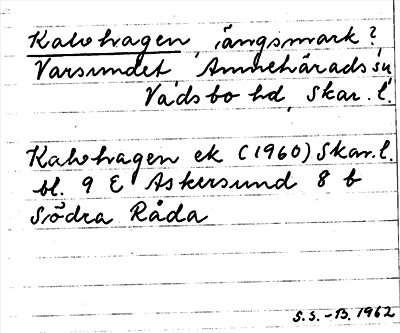 Kalvhagen, ängsmark?
Varsundet Amnehärads sn
Vadsbo hd, Skar. l.
Kalvhagen ek (1960) Skar. l.
bl. 9 E Askersund 8 b
Södra Råda
S.S. - B. 1962